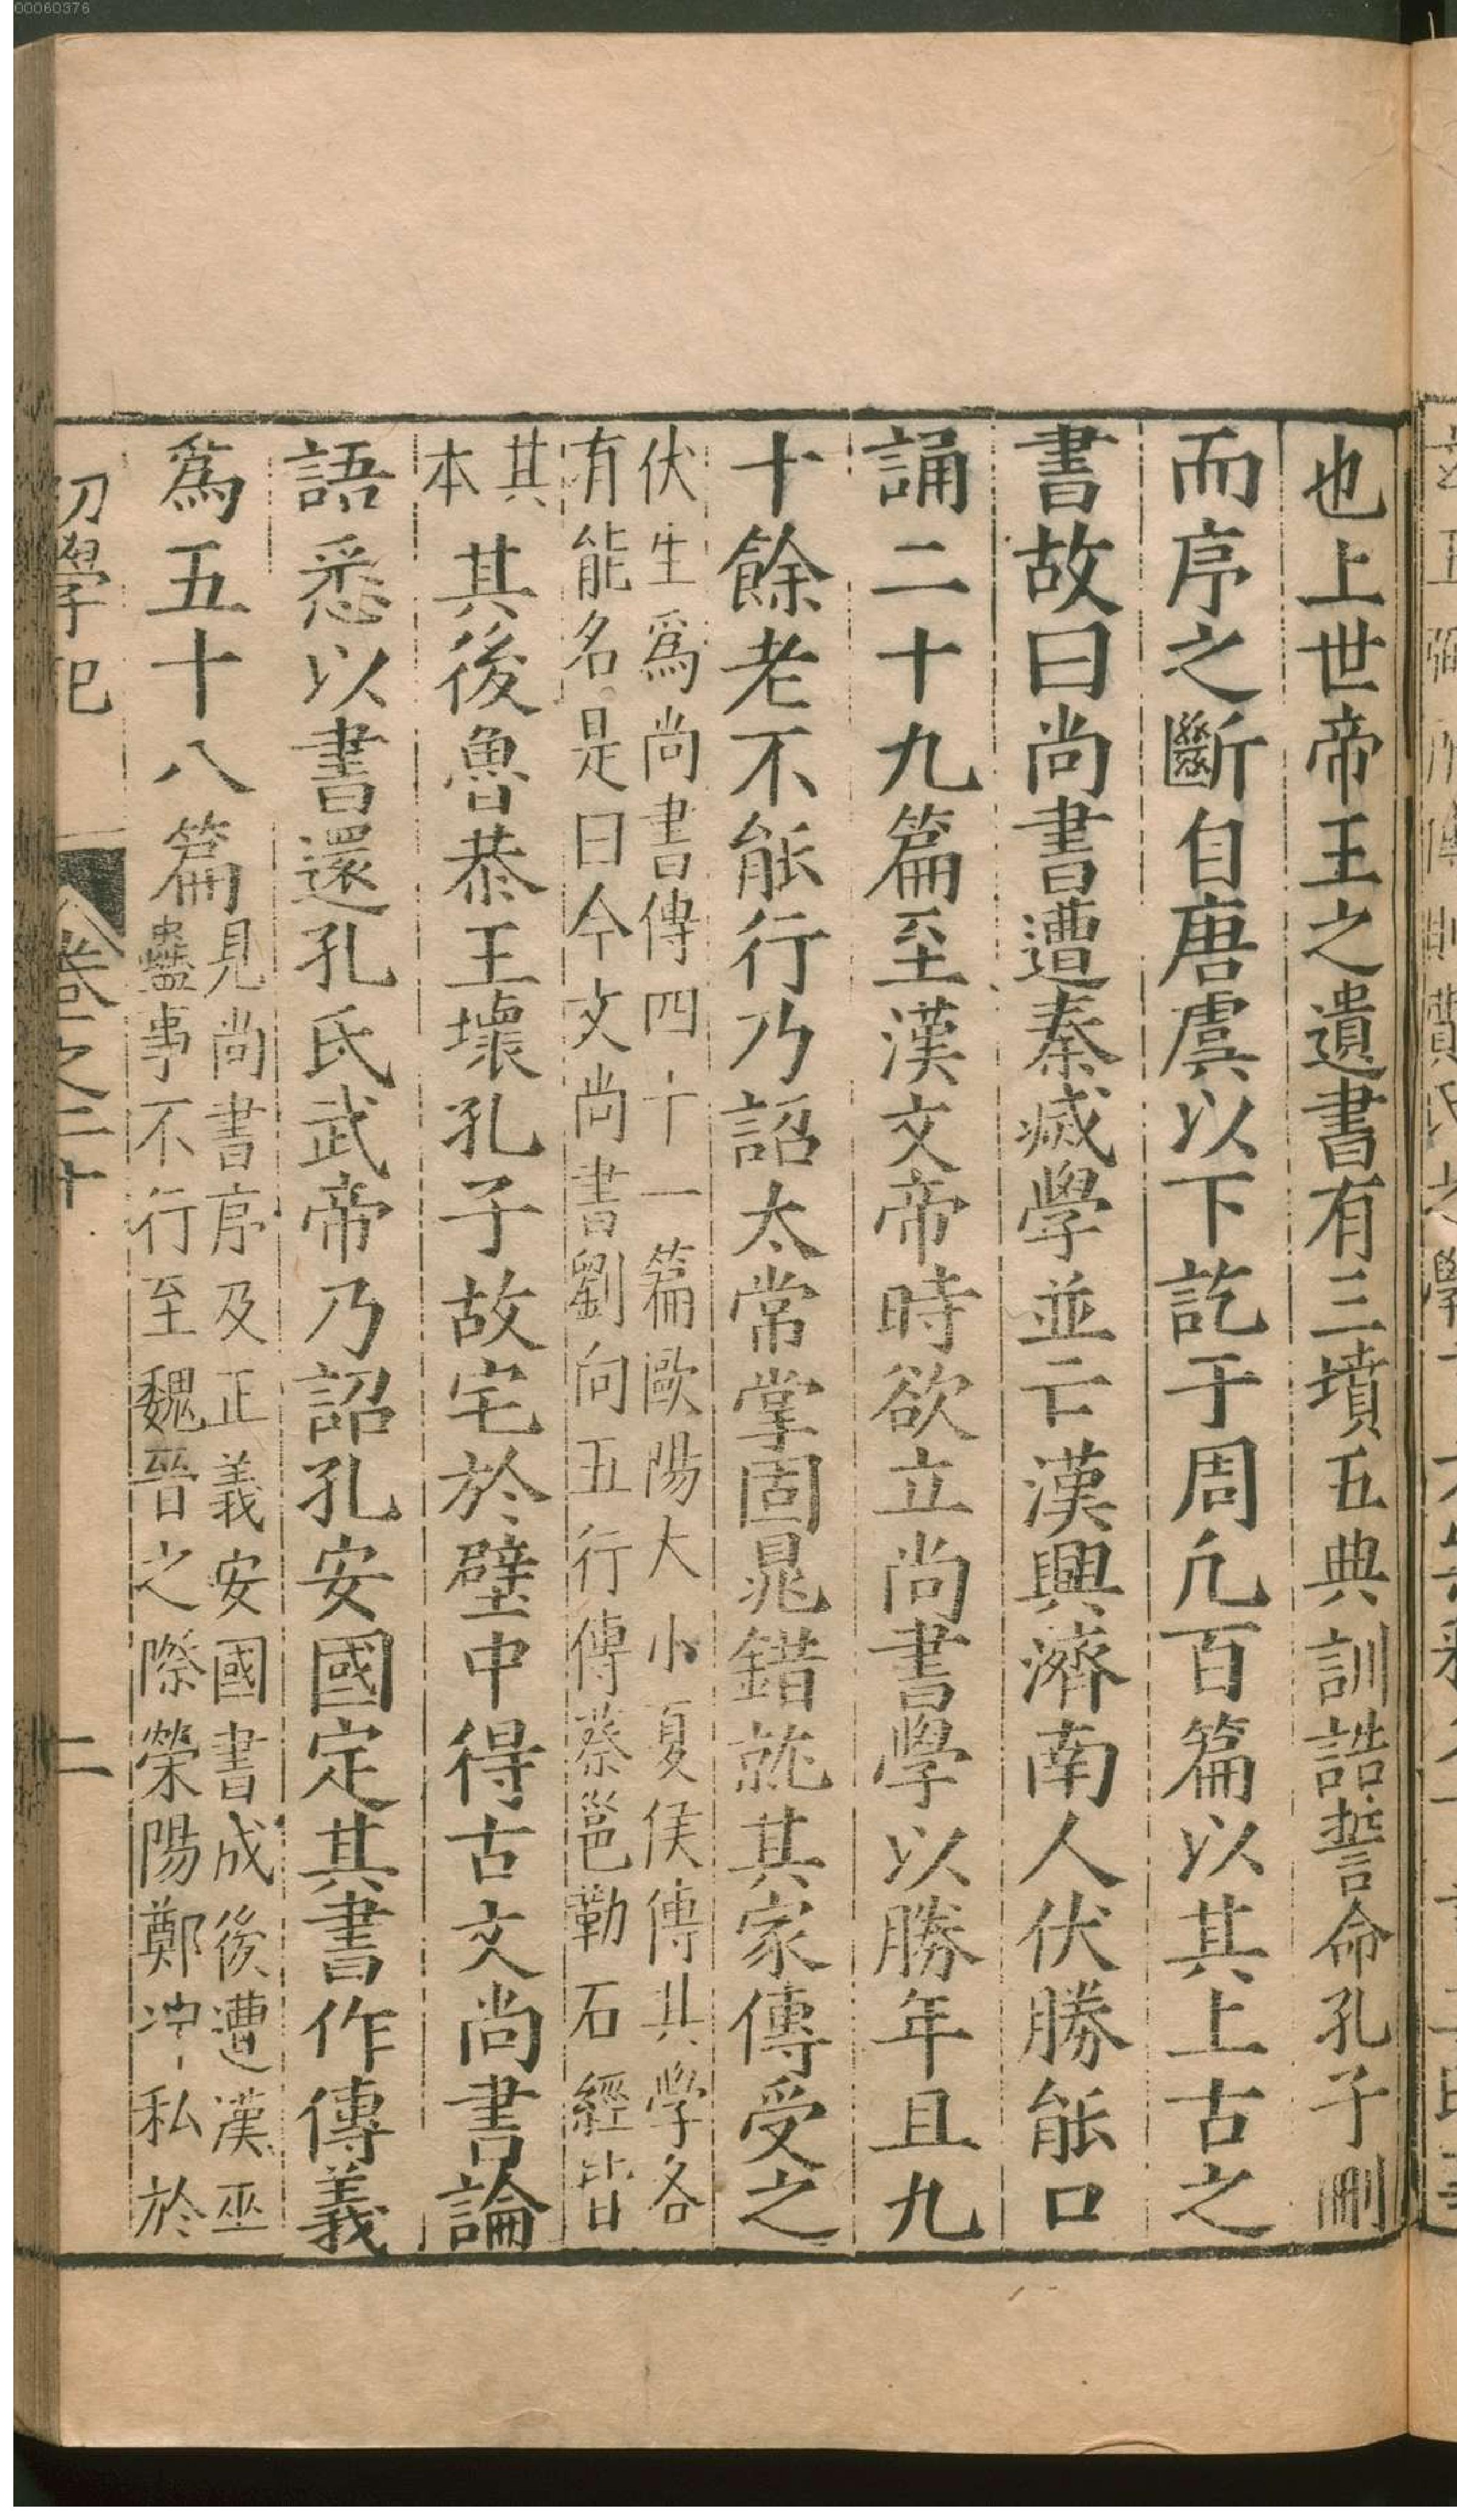 00060376
也上世帝王之遺書有三墳五典訓誥誓命孔子刪
而序之斷自唐虞以下訖于周凢百篇以其上古之
書故曰尚書遭秦滅學並亡漢興濟南人伏勝能口
誦二十九篇至漢文帝時欲立尚書學以勝年且九
十餘老不能行乃詔太常掌固晁錯就其家傳受之
伏生爲尚書傳四十一篇歐陽大小夏侯傳其學各
有能名是曰今文尚書劉向五行傳蔡邕勒石經皆
其
本
其後魯恭王壞孔子故宅於壁中得古文尚書論
語悉以書還孔氏武帝乃詔孔安國定其書作傳義
爲五十八篇
見尚書序及正義安國書成後遭漢巫
蠱事不行至魏晉之際榮陽鄭冲私於
初學記 卷之二十 二